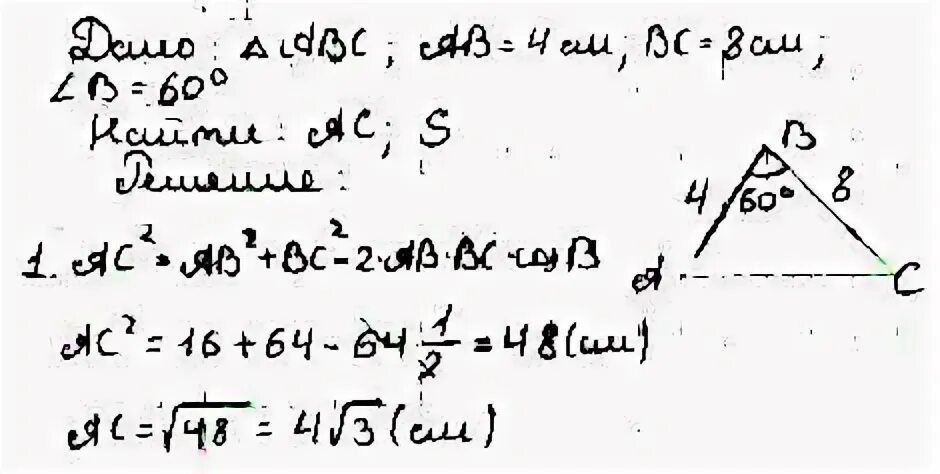 Дано: △ABC; AB = 4 см; BC = 8 см;
∠B = 60°
Найти: AC; S
Решение:
1. AC² = AB² + BC² - 2·AB·BC·cos B
AC² = 16 + 64 - 64 · 1/2 = 48 (см)
AC = √48 = 4√3 (см)
B
4
60°
8
A
C